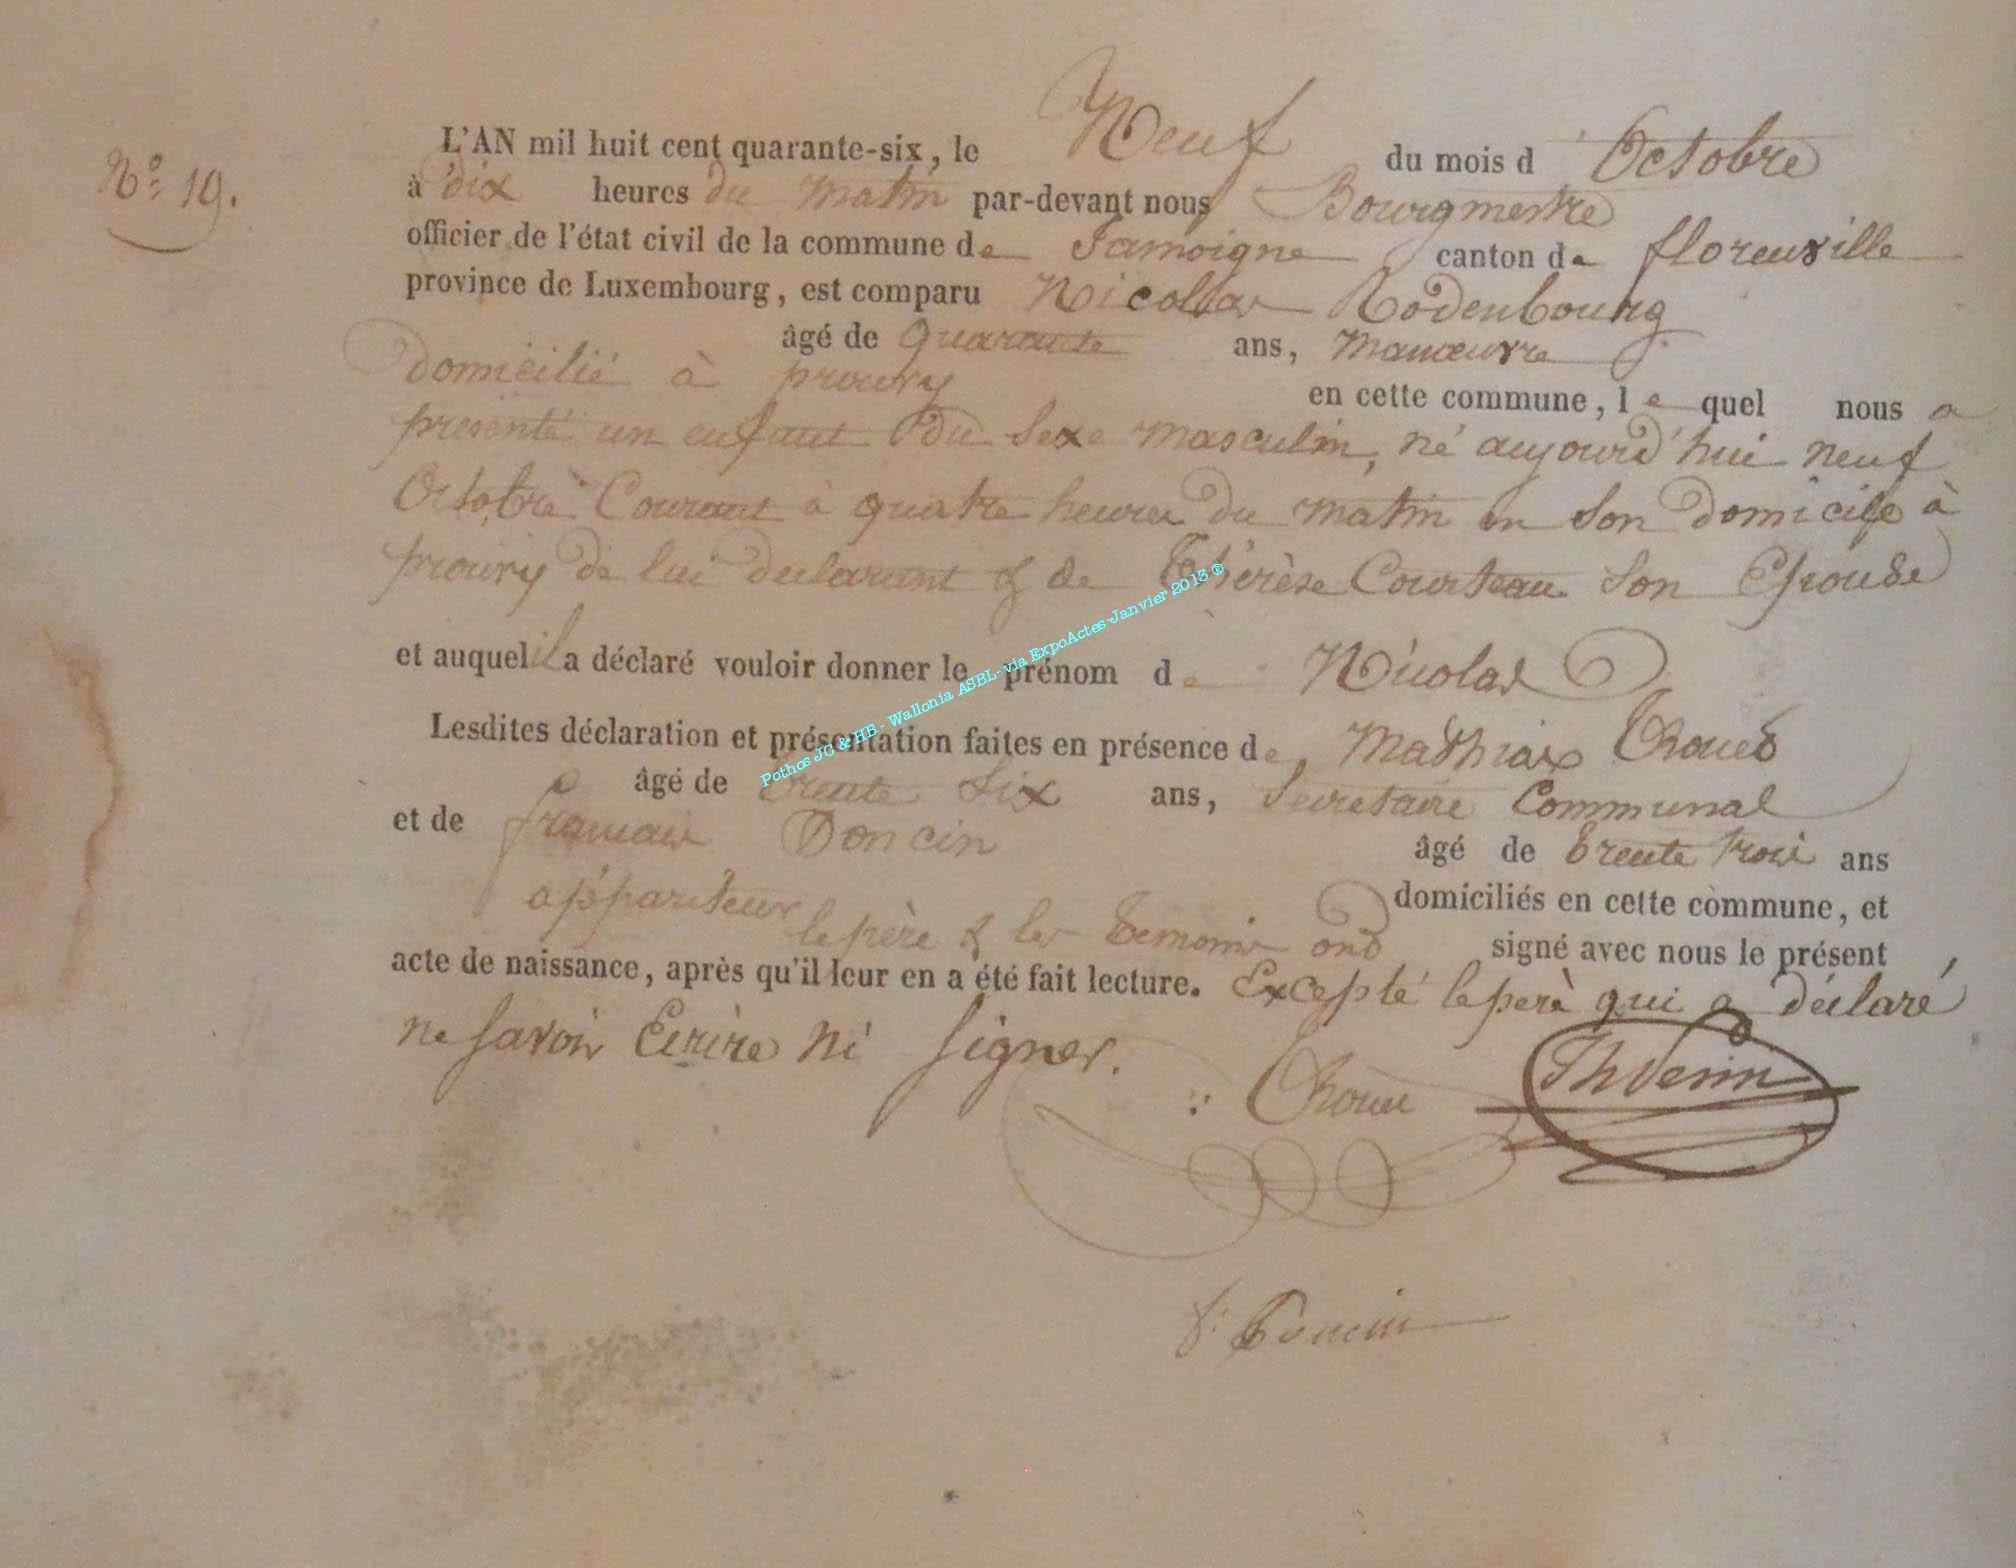 N° 19.
L'AN mil huit cent quarante-six, le Neuf du mois d Octobre
à dix heures du matin par-devant nous Bourgmestre
officier de l'état civil de la commune de Jamoigne canton de florenville
province de Luxembourg, est comparu Nicollas Rodenbourg
âgé de quarante ans, manœuvre
domicilié à prouvy en cette commune, le quel nous a
présenté un enfant du sexe masculin, né aujourd'hui neuf
Octobre Courant à quatre heures du matin en son domicile à
prouvy de lui déclarant & de Thérèse Courteau son Epouse
et auquel il a déclaré vouloir donner le prénom de Nicolas
Lesdites déclaration et présentation faites en présence de Mathias
âgé de trente six ans, Secretaire Communal
et de francois Poncin âgé de trente trois ans
appariteur domiciliés en cette commune, et
le père & les témoins ont signé avec nous le présent
acte de naissance, après qu'il leur en a été fait lecture. Excepté le père qui a déclaré
ne savoir Ecrire ni signer.
Th Verin
f. Poncin
Pothos JC & HB - Wallonia ASBL- via ExpoActes-Janvier 2013 ©